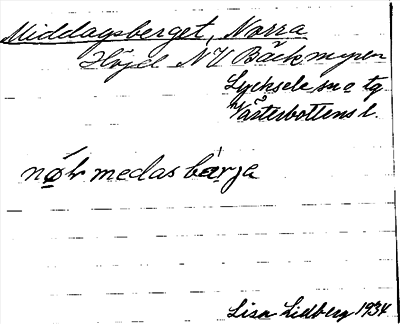 Middagsberget, Norra
Höjd NV Bäckmyren
Lycksele sn o tg
Västerbottens l.
nǿr medas bärja
Lisa Lidberg 1934